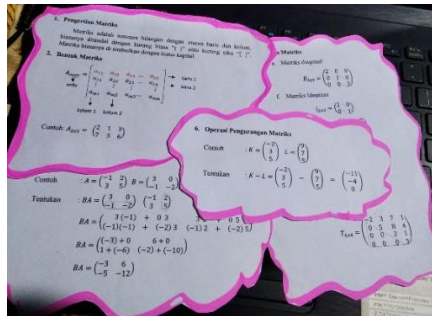 1. Pengertian Matriks
Matriks adalah susunan bilangan dengan aturan baris dan kolom,
biasanya ditandai dengan kurung biasa "( )" atau kurung siku "[ ]".
Matriks biasanya di simbolkan dengan huruf kapital.
2. Bentuk Matriks
baris 1
baris 2
kolom 1 kolom 2
Contoh: A₂ₓ₃ = (2 1 3
7 5 6)
Matriks
e. Matriks diagonal
f. Matriks Identitas
6. Operasi Pengurangan Matriks
Contoh : K = (-2 L = (9
3 7
5) 5)
Tentukan : K - L = (-2 - (9 = (-11
3 7 -4
5) 5) 0)
Contoh : A = (-1 2 B = (3 0
3 5) -1 -2)
Tentukan : BA = (3 0 (-1 2
-1 -2) 3 5)
BA = (3(-1) + 0 3 3 + 0 5
(-1)(-1) + (-2)3 (-1)2 + (-2)5)
BA = ((-3) + 0 6+0
1 + (-6) (-2) + (-10))
BA = (-3 6
-5 -12)
-2 3 7 1
0 5 8 6
0 0 2 1
0 0 0 3